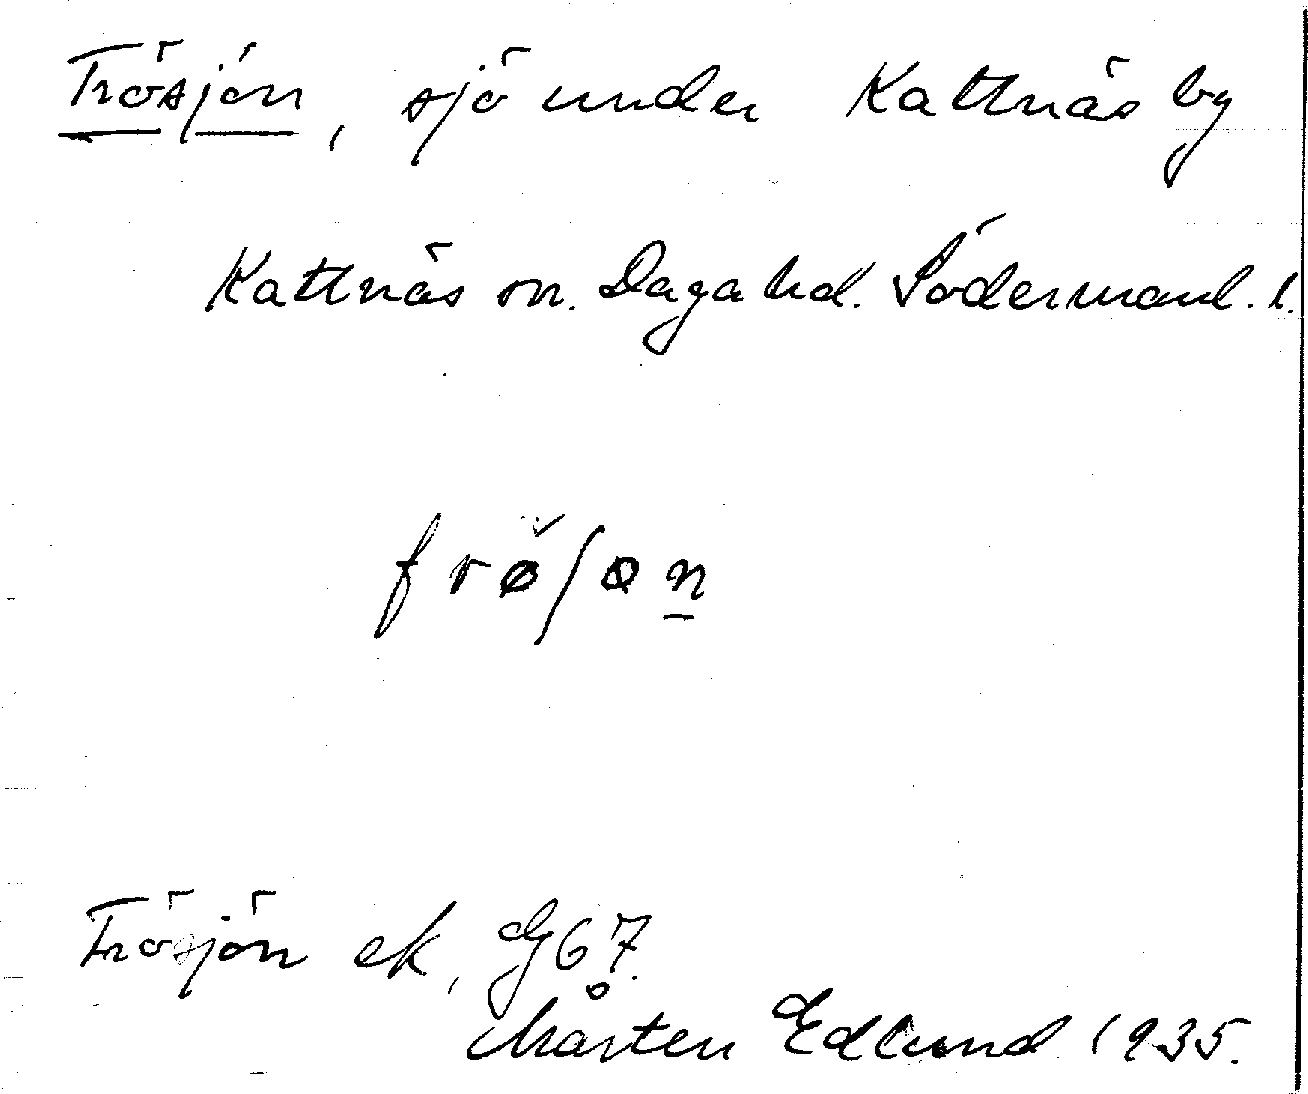 Frösjön, sjö under Kattnäs by
Kattnäs sn. Daga hd. Södermanl. l.
frø̌ʃøn̲
Frösjön ek, G67.
Mårten Edlund 1935.